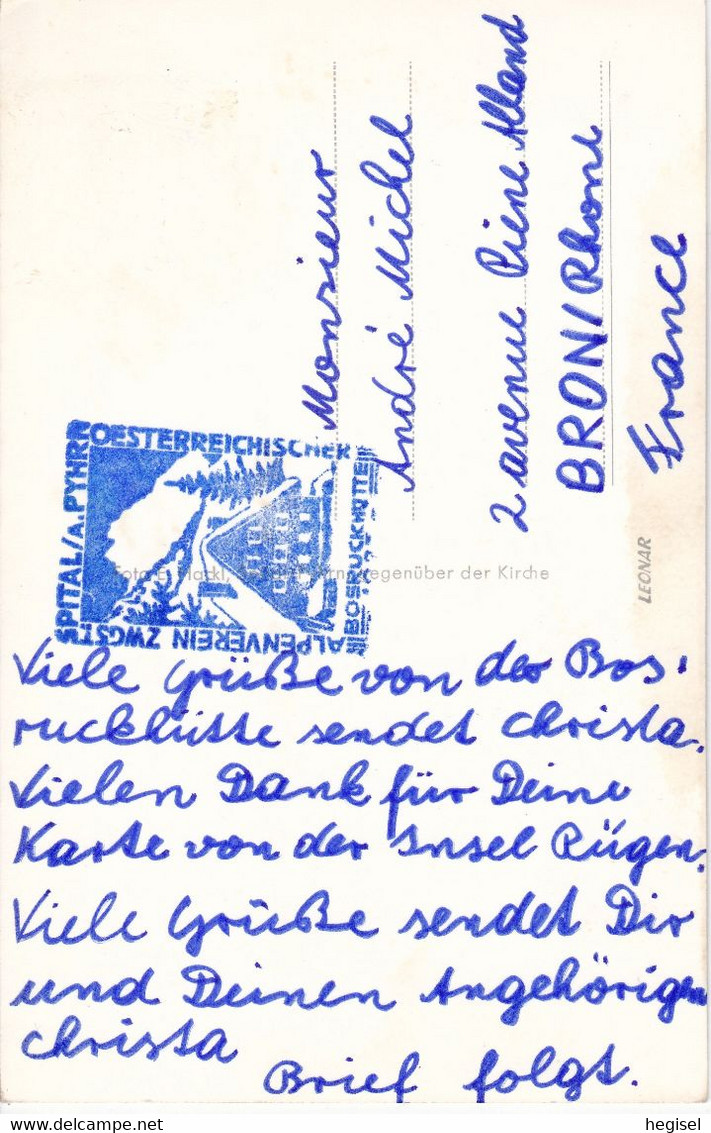 Monsieur
André Michel
2 avenue Piene Alland
BRON/Rhone
France
OESTERREICHISCHER
ALPENVEREIN ZWGST
SPITAL/A.PYHRN
BOSRUCKHÜTTE
gegenüber der Kirche
LEONAR
Viele Grüße von der Bos-
ruckhütte sendet Christa.
Vielen Dank für Deine
Karte von der Insel Rügen.
Viele Grüße sendet Dir
und Deinen Angehörigen
Christa
Brief folgt.
hegisel